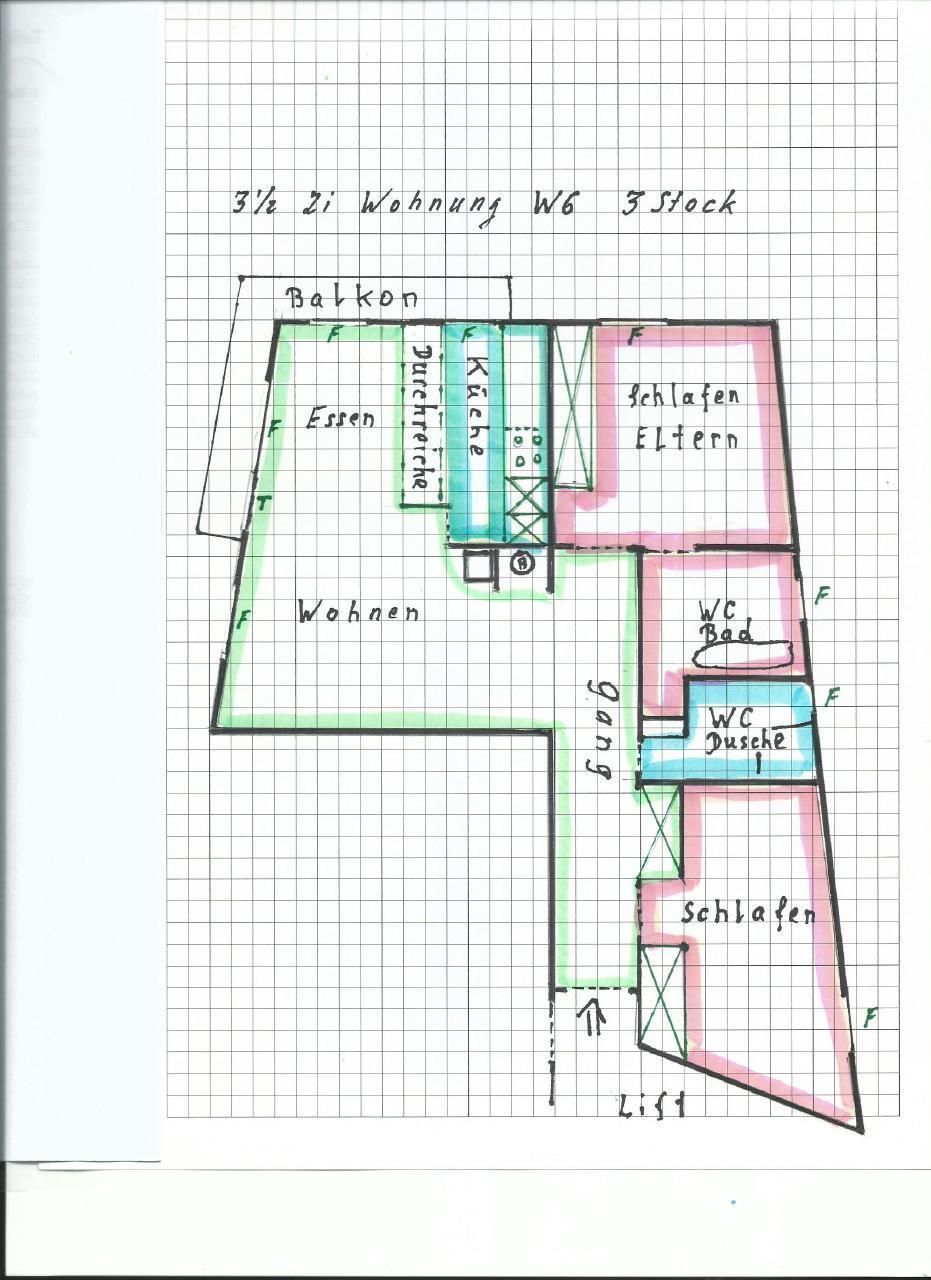 3½ Zi Wohnung W6 3 Stock
Balkon
F
F
F
Durchreiche
Küche
Essen
Schlafen
Eltern
F
T
F
Wohnen
WC
Bad
F
F
WC
Dusche
gang
Schlafen
F
Lift